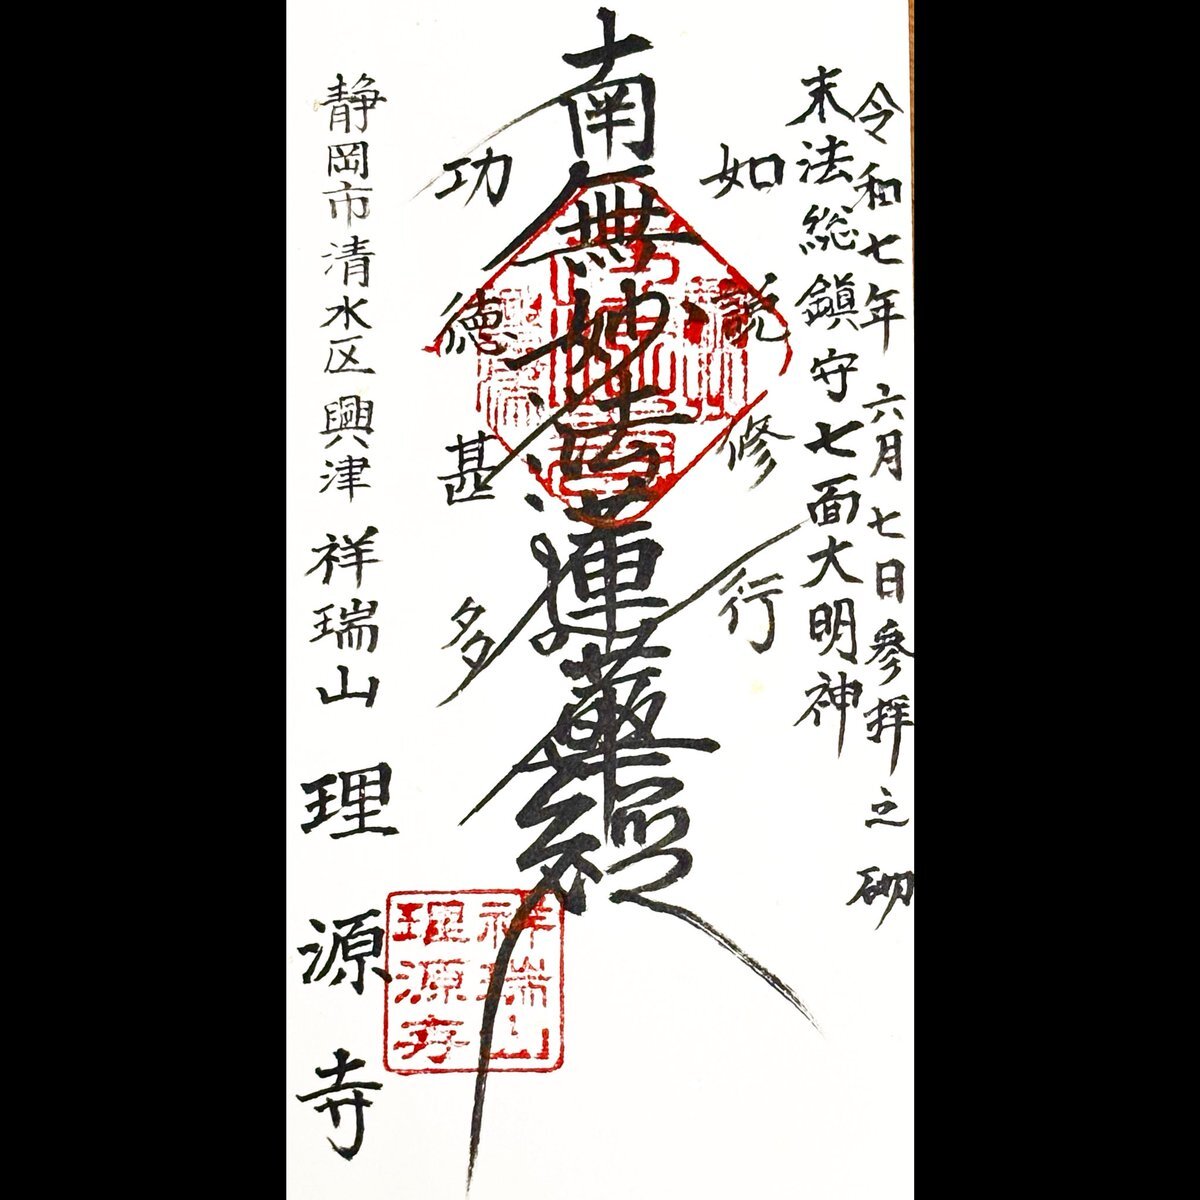 令和七年 六月七日参拝之砌
末法総鎮守七面大明神
如説修行
南無妙法蓮華經
功徳甚多
静岡市清水区興津 祥瑞山 理源寺
祥瑞山
理源寺